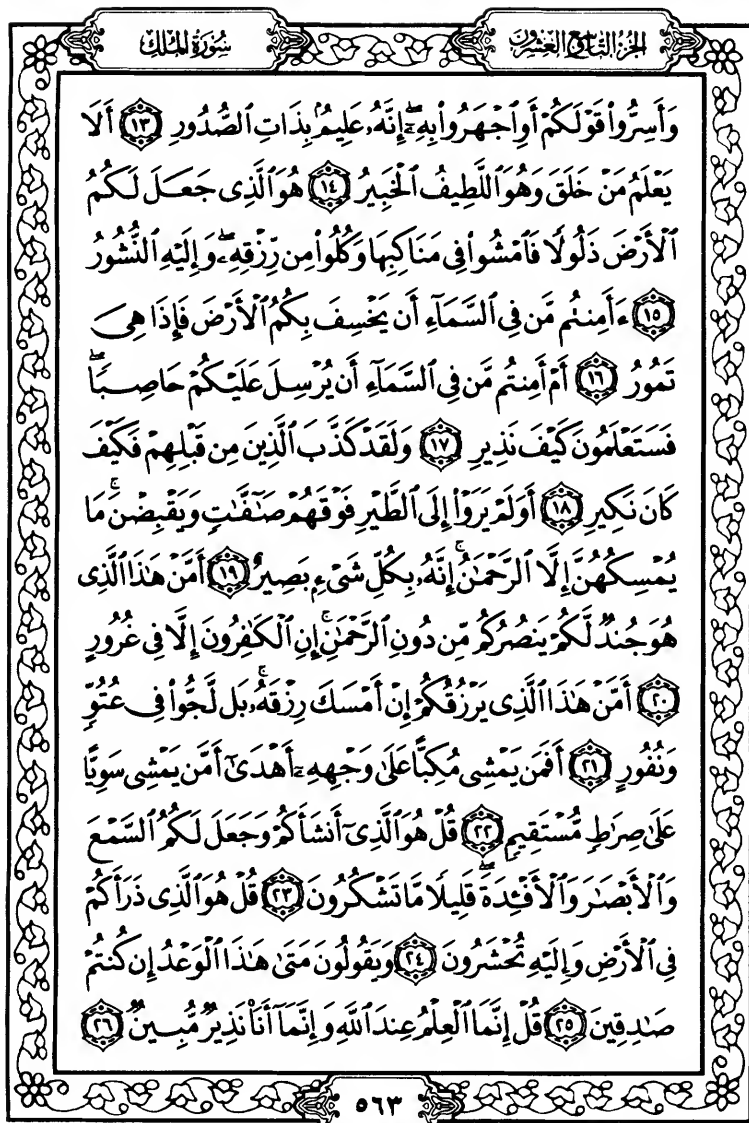 سُورَةُ المُلْكِ
الجُزءُ التَّاسِعُ وَالعِشْرُونَ
وَأَسِرُّوا۟ قَوْلَكُمْ أَوِ ٱجْهَرُوا۟ بِهِۦٓ ۖ إِنَّهُۥ عَلِيمٌۢ بِذَاتِ ٱلصُّدُورِ ١٣ أَلَا
يَعْلَمُ مَنْ خَلَقَ وَهُوَ ٱللَّطِيفُ ٱلْخَبِيرُ ١٤ هُوَ ٱلَّذِى جَعَلَ لَكُمُ
ٱلْأَرْضَ ذَلُولًا فَٱمْشُوا۟ فِى مَنَاكِبِهَا وَكُلُوا۟ مِن رِّزْقِهِۦ ۖ وَإِلَيْهِ ٱلنُّشُورُ
١٥ ءَأَمِنتُم مَّن فِى ٱلسَّمَآءِ أَن يَخْسِفَ بِكُمُ ٱلْأَرْضَ فَإِذَا هِىَ
تَمُورُ ١٦ أَمْ أَمِنتُم مَّن فِى ٱلسَّمَآءِ أَن يُرْسِلَ عَلَيْكُمْ حَاصِبًا ۖ
فَسَتَعْلَمُونَ كَيْفَ نَذِيرِ ١٧ وَلَقَدْ كَذَّبَ ٱلَّذِينَ مِن قَبْلِهِمْ فَكَيْفَ
كَانَ نَكِيرِ ١٨ أَوَلَمْ يَرَوْا۟ إِلَى ٱلطَّيْرِ فَوْقَهُمْ صَٰٓفَّٰتٍ وَيَقْبِضْنَ ۚ مَا
يُمْسِكُهُنَّ إِلَّا ٱلرَّحْمَٰنُ ۚ إِنَّهُۥ بِكُلِّ شَىْءٍۭ بَصِيرٌ ١٩ أَمَّنْ هَٰذَا ٱلَّذِى
هُوَ جُندٌ لَّكُمْ يَنصُرُكُم مِّن دُونِ ٱلرَّحْمَٰنِ ۚ إِنِ ٱلْكَٰفِرُونَ إِلَّا فِى غُرُورٍ
٢٠ أَمَّنْ هَٰذَا ٱلَّذِى يَرْزُقُكُمْ إِنْ أَمْسَكَ رِزْقَهُۥ ۚ بَل لَّجُّوا۟ فِى عُتُوٍّ
وَنُفُورٍ ٢١ أَفَمَن يَمْشِى مُكِبًّا عَلَىٰ وَجْهِهِۦٓ أَهْدَىٰٓ أَمَّن يَمْشِى سَوِيًّا
عَلَىٰ صِرَٰطٍ مُّسْتَقِيمٍ ٢٢ قُلْ هُوَ ٱلَّذِىٓ أَنشَأَكُمْ وَجَعَلَ لَكُمُ ٱلسَّمْعَ
وَٱلْأَبْصَٰرَ وَٱلْأَفْـِٔدَةَ ۖ قَلِيلًا مَّا تَشْكُرُونَ ٢٣ قُلْ هُوَ ٱلَّذِى ذَرَأَكُمْ
فِى ٱلْأَرْضِ وَإِلَيْهِ تُحْشَرُونَ ٢٤ وَيَقُولُونَ مَتَىٰ هَٰذَا ٱلْوَعْدُ إِن كُنتُمْ
صَٰدِقِينَ ٢٥ قُلْ إِنَّمَا ٱلْعِلْمُ عِندَ ٱللَّهِ وَإِنَّمَآ أَنَا۠ نَذِيرٌ مُّبِينٌ ٢٦
٥٦٣